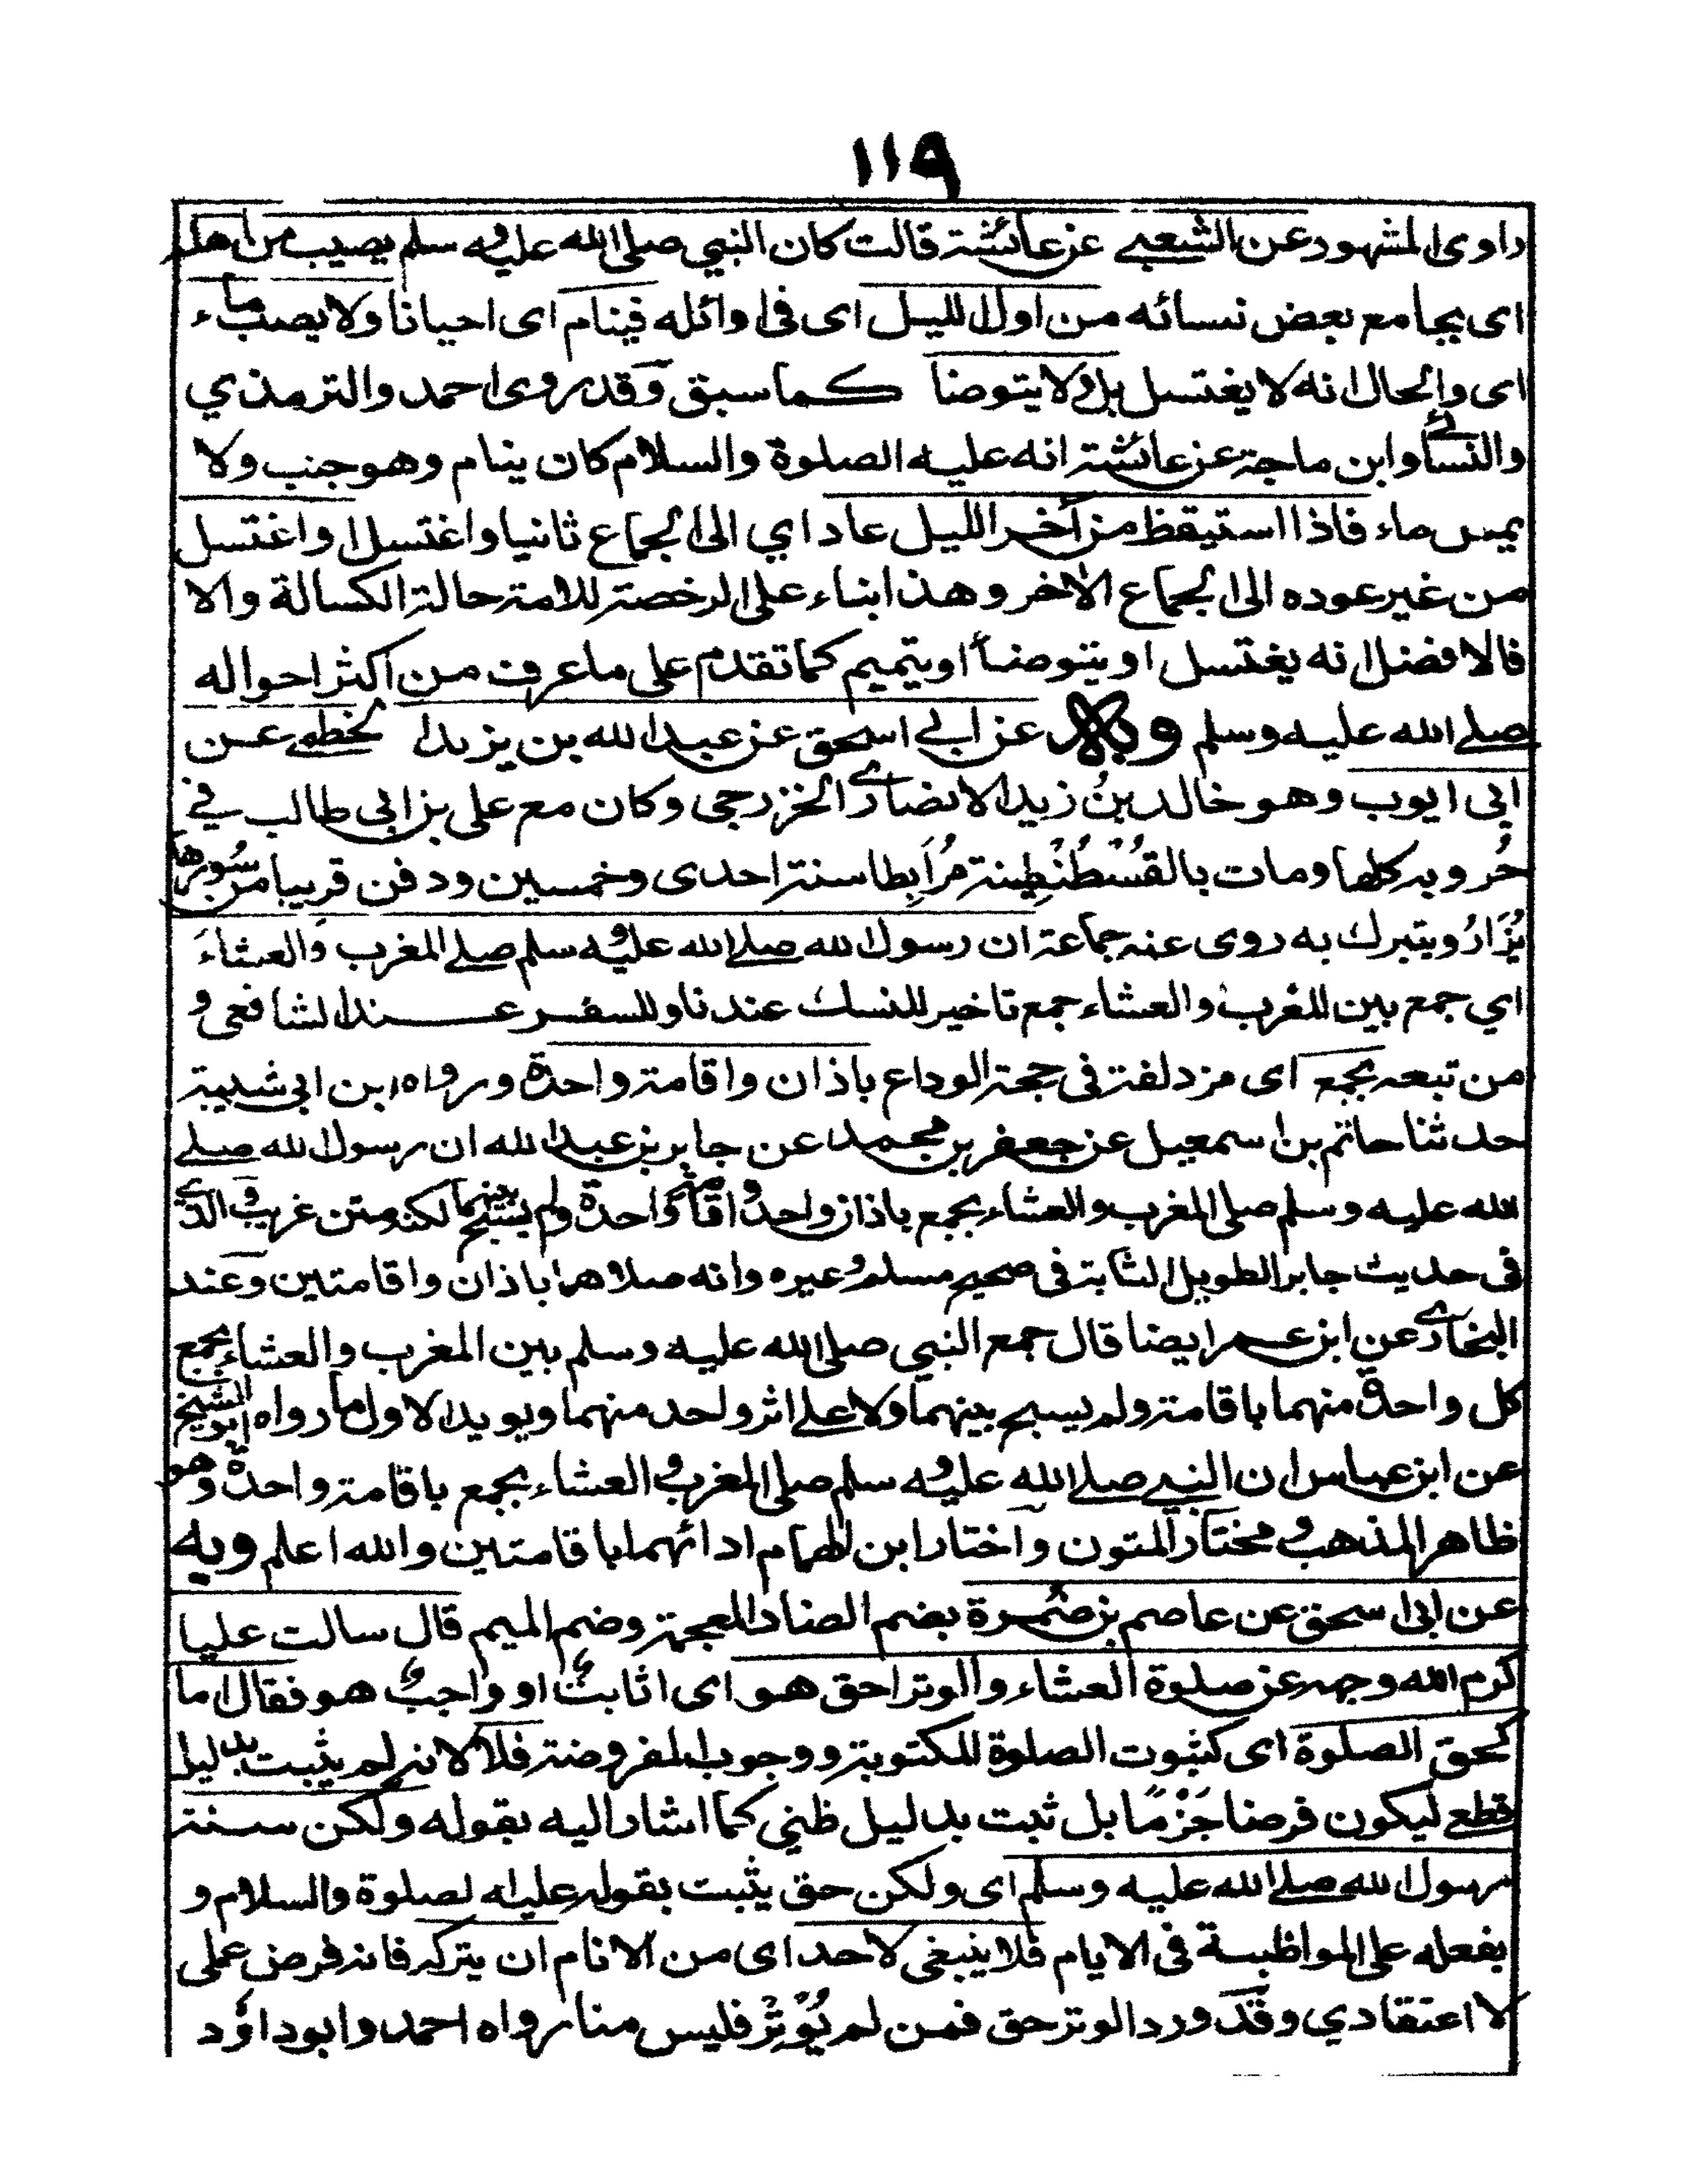 ١١٩
راوى المشهود عن الشعبي عن عائشة قالت كان النبي صلى الله عليه وسلم يصيب من اهله
اى يجامع بعض نسائه من اول الليل اى فى اوائله فينام اى احيانا ولا يصيب ماء
اى والحال انه لا يغتسل بل ولا يتوضا كما سبق وقد روى احمد والترمذي
والنسائي وابن ماجة عن عائشة انه عليه الصلوة والسلام كان ينام وهو جنب ولا
يمس ماء فاذا استيقظ من آخر الليل عاد اي الى الجماع ثانيا واغتسل او اغتسل
من غير عوده الى الجماع الآخر وهذا بناء على الرخصة للامة حالة الكسالة والا
فالافضل انه يغتسل او يتوضأ او يتميم كما تقدم على ما عرف من اكثر احواله
صلى الله عليه وسلم وبه عن ابي اسحق عن عبد الله بن يزيد الخطمي عن
ابى ايوب وهو خالد بن زيد الانصاري الخزرجى وكان مع على بن ابى طالب في
حُروبه كلها ومات بالقُسْطُنْطِينة مُرَابِطا سنة احدى وخمسين ودفن قريبا من سُورها
يُزَارُ ويتبرك به روى عنه جماعة ان رسول الله صلى الله عليه وسلم صلى المغرب والعشاءَ
اي جمع بين المغرب والعشاء جمع تاخير للنسك عندنا وللسفر عند الشافعى و
من تبعه بجمع اى مزدلفة فى حجة الوداع باذان واقامة واحدة ورواه ابن ابى شيبة
حدثنا حاتم بن اسمعيل عن جعفر بن محمد عن جابر بن عبد الله ان رسول الله صلى
الله عليه وسلم صلى المغرب والعشاء بجمع باذان واحد واقامة واحدة ولم يسبّح بينهما لكنه متن غريب والذي
فى حديث جابر الطويل الثابت فى صحيح مسلم وغيره وانه صلاهما باذان واقامتين وعند
البخاري عن ابن عمر ايضا قال جمع النبي صلى الله عليه وسلم بين المغرب والعشاء بجمع
كل واحدة منهما باقامة ولم يسبح بينهما ولا على اثر واحد منهما ويويد الاول ما رواه ابو الشيخ
عن ابن عباس ان النبي صلى الله عليه وسلم صلى المغرب والعشاء بجمع باقامة واحدة وهو
ظاهر المذهب و مختار المتون واختار ابن الهمام ادائهما باقامتين والله اعلم وبه
عن ابى اسحق عن عاصم بن ضُمرة بضم الضاد المعجمة وضم الميم قال سالت عليا
كرم الله وجهه عن صلوة العشاء والوتر احق هو اى اثابتُ او واجبُ هو فقال اما
كحق الصلوة اى كثبوت الصلوة المكتوبة ووجوب المفروضة فلا لانه لم يثبت بدليل
قطعي ليكون فرضا جَزْمًا بل ثبت بدليل ظني كما اشار اليه بقوله ولكن سنة
رسول الله صلى الله عليه وسلم اى ولكن حق يثبت بقوله عليه الصلوة والسلام و
بفعله على المواظبة فى الايام فلا ينبغى لاحد اى من الانام ان يتركه فانه فرض عملى
لا اعتقادي وقد ورد الوتر حق فمن لم يُوْتِرْ فليس منا رواه احمد وابو داؤد